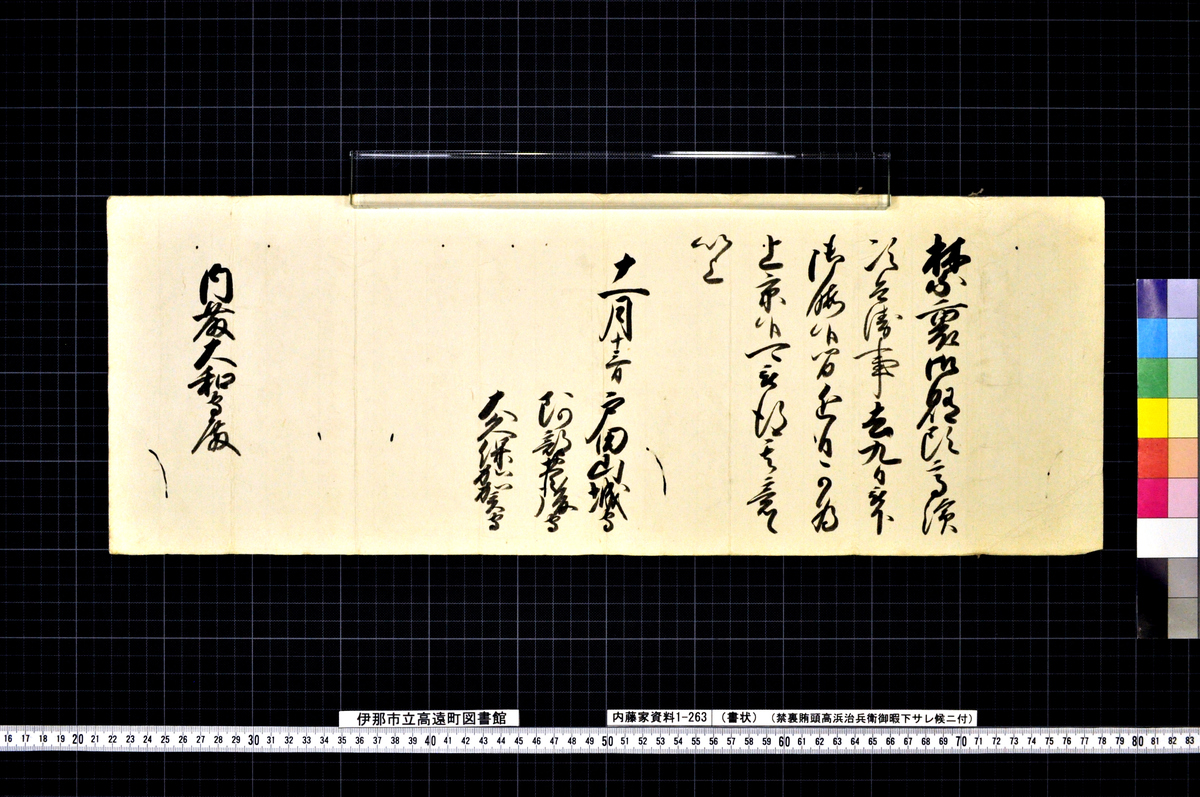 禁裏御賄頭高濱
次兵衛事去九日被下
御暇候間近日可為
上京候可被得其意候
以上
十一月十三日
戸田山城守
阿部豊後守
大久保加賀守
内藤大和守殿
伊那市立高遠町図書館
内藤家資料1-263 (書状) (禁裏賄頭高浜治兵衛御暇下サレ候ニ付)
16 17 18 19 20 21 22 23 24 25 26 27 28 29 30 31 32 33 34 35 36 37 38 39 40 41 42 43 44 45 46 47 48 49 50 51 52 53 54 55 56 57 58 59 60 61 62 63 64 65 66 67 68 69 70 71 72 73 74 75 76 77 78 79 80 81 82 83